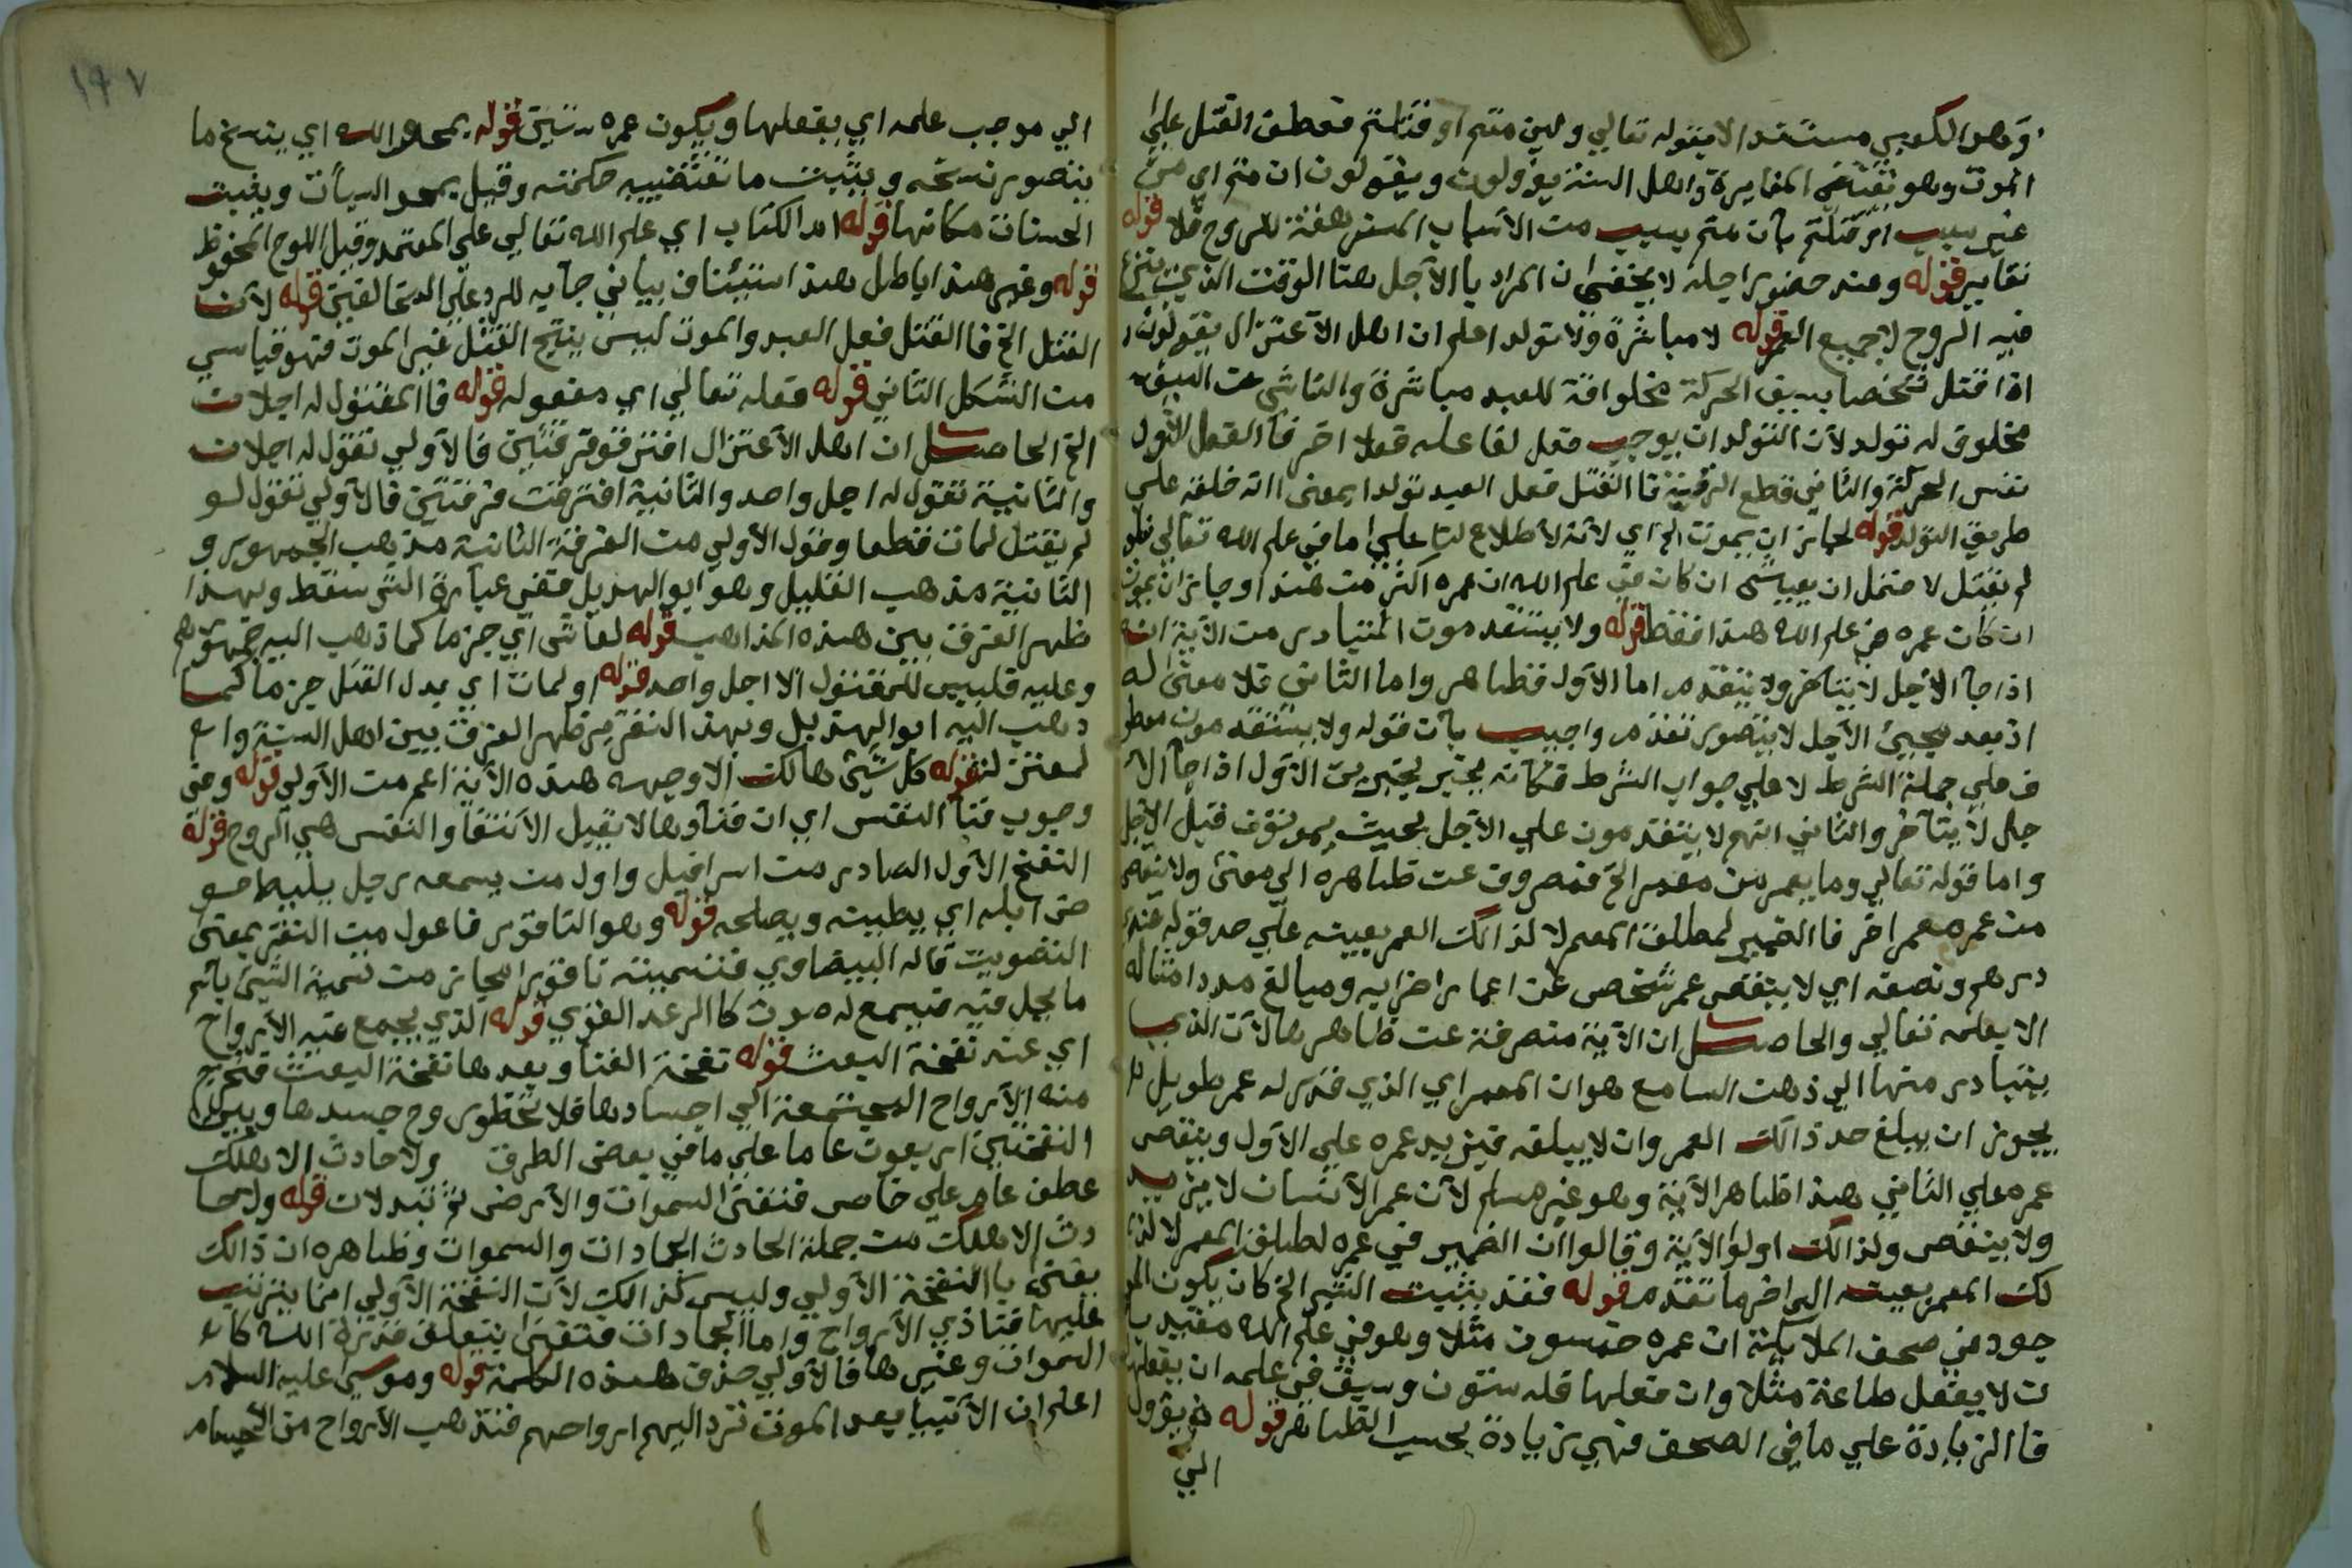 وهو الكعبي مستندا لقوله تعالي ولين متم او قتلتم فعطف القتل علي
الموت وهو تقتضي المغايرة واهل السنة يؤولون ويقولون ان متم اي من
غير سبب او قتلتم بان متم بسبب من الاسباب المزهقة للروح فلا
تغاير قوله وعند حضور اجله لا يخفى ان المراد با الاجل هنا الوقت الذي ينتزع
فيه الروح لا جميع العمر قوله لا مباشرة ولا تولد اعلم ان اهل الاعتزال يقولون
اذا قتل شخصا بسيف الحركة مخلوقة للعبد مباشرة والناشي عن السيف
مخلوق له تولد لان التولد ان يوجب فعل لفاعله فعلا اخر فا الفعل الاول
نفس الحركة والثاني قطع الرقبة فا القتل فعل العبد تولدا بمعنى انه خلقه علي
طريق التولد قوله لجاز ان يموت الخ اي لانه لا اطلاع لنا علي ما في علم الله تعالي فلو
لم يقتل لاحتمل ان يعيش ان كان في علم الله ان عمره اكثر من هذا وجاز ان يموت
ان كان عمره في علم الله هذا فقط قوله ولا يستقدموت المتبادر من الاية انه
اذا جا الاجل لا يتاخر ولا يتقدم اما الاول فظاهر واما الثاني فلا معنى له
اذ بعد مجيئ الاجل لا يتصور تقدم واجيب بان قوله ولا يستقدمون معطو
ف علي جملة الشرط لا علي جواب الشرط فكانه يخبر بخبرين الاول اذا جا الا
جل لا يتاخر والثاني انهم لا يتقدمون علي الاجل بحيث يموتون قبل الاجل
واما قوله تعالي وما يعمر من معمر الخ فمصروف عن ظاهره الي معنى ولا ينقص
من عمره معمر اخر فا الضمير لمطلق المعمر لا لذالك المعمر بعينه علي حد قوله عندي
درهم ونصفه اي لا ينقص عمر شخص عن اعمار اضرابه ومبالغ مدد امثاله
الا بعلمه تعالي والحاصل ان الاية منصرفة عن ظاهرها لان الذي
يتبادر منها الي ذهن السامع هو ان المعمر اي الذي قدر له عمر طويل
يجوز ان يبلغ حد ذالك العمر وان لا يبلغه فيزيد عمره علي الاول وينقص
عمره علي الثاني هذا ظاهر الاية وهو غير مسلم لان عمر الانسان لا يزيد
ولا ينقص ولذالك اولوا الاية وقالوا ان الضمير في عمره لمطلق المعمر لا لذا
لك المعمر بعينه الي اخر ما تقدم قوله فقد يثبت الشي الخ كان يكون المو
جود في صحف الملايكة ان عمره خمسون مثلا وهو في علم الله مقيد با
ن لا يفعل طاعة مثلا وان فعلها فله ستون وسبق في علمه ان يفعلها
فا الزيادة علي ما في الصحف فهي زيادة بحسب الظاهر قوله فيؤول
الي
١٩٧
الي موجب علمه اي بفعلها ويكون عمره ستين قوله يمحوا الله اي ينسخ ما
يتصور نسخه ويثبت ما تقتضييه حكمته وقيل يمحو السيأت ويثبت
الحسنات مكانها قوله ام الكتاب اي علم الله تعالي علي المعتمد وقيل اللوح المحفوظ
قوله وغير هذا باطل هذا استئناف بياني جا به للرد علي المخالفين قوله لان
القتل الخ فا القتل فعل العبد والموت ليس ينتج القتل غير الموت فهو قياسي
من الشكل الثاني قوله فعله تعالي اي مفعوله قوله فا المقتول له اجلان
الخ الحاصل ان اهل الاعتزال افترقو فرقتين فا الاولي تقول له اجلان
والثانية تقول له اجل واحد والثانية افترقت فرقتين فالاولي تقول لو
لم يقتل لمات قطعا وقول الاولي من الفرقة الثانية مذهب الجمهور و
الثانية مذهب القليل وهو ابو الهذيل ففي عبارة الشر سقط وبهذا
ظهر الفرق بين هذه المذاهب قوله لعاش اي جزما كما ذهب اليه جمهورهم
وعليه فليس للمقتول الا اجل واحد قوله او لمات اي بدل القتل جزما كما
ذهب اليه ابوا الهذيل وبهذ التقرير ظهر الفرق بين اهل السنة وا
لمعتزلة قوله كل شئ هالك الا وجهه هذه الاية اعم من الاولي قوله وفي
وجوب فنا النفس اي ان فناوها لا يقبل الانتفا والنفس هي الروح قوله
النفخ الاول الصادر من اسرافيل واول من يسمعه رجل يليط حو
ض ابله اي يطينه ويصلحه قوله وهو الناقور فاعول من النقر بمعنى
التصويت قاله البيضاوي فتسميته ناقورا مجاز من تسمية الشئ باسم
ما يحل فيه فيسمع له صوت كا الرعد القوي قوله الذي يجمع فيه الارواح
اي عند نفخة البعث قوله نفخة الفنا وبعدها نفخة البعث فتخرج
منه الارواح المجتمعة الي اجسادها فلا تخطو روح جسدها وبين
النفختين اربعون عاما علي ما في بعض الطرق ولا حادث الا هلك
عطف عام علي خاص فتفنى السموات والارض ثم تبدلان قوله ولا حا
دث الا هلك من جملة الحادث الجمادات والسموات وظاهره ان ذالك
يفنى با النفخة الاولي وليس كذالك لان النفخة الاولي انما يترتب
عليها فنا ذي الارواح واما الجمادات فتفنى بتعلق قدرة الله كا
السموات وغيرها فا الاولي حذف هذه الكلمة قوله وموسى عليه السلام
اعلم ان الانبيا بعد الموت ترد اليهم ارواحهم فتذهب الارواح من الاجسام